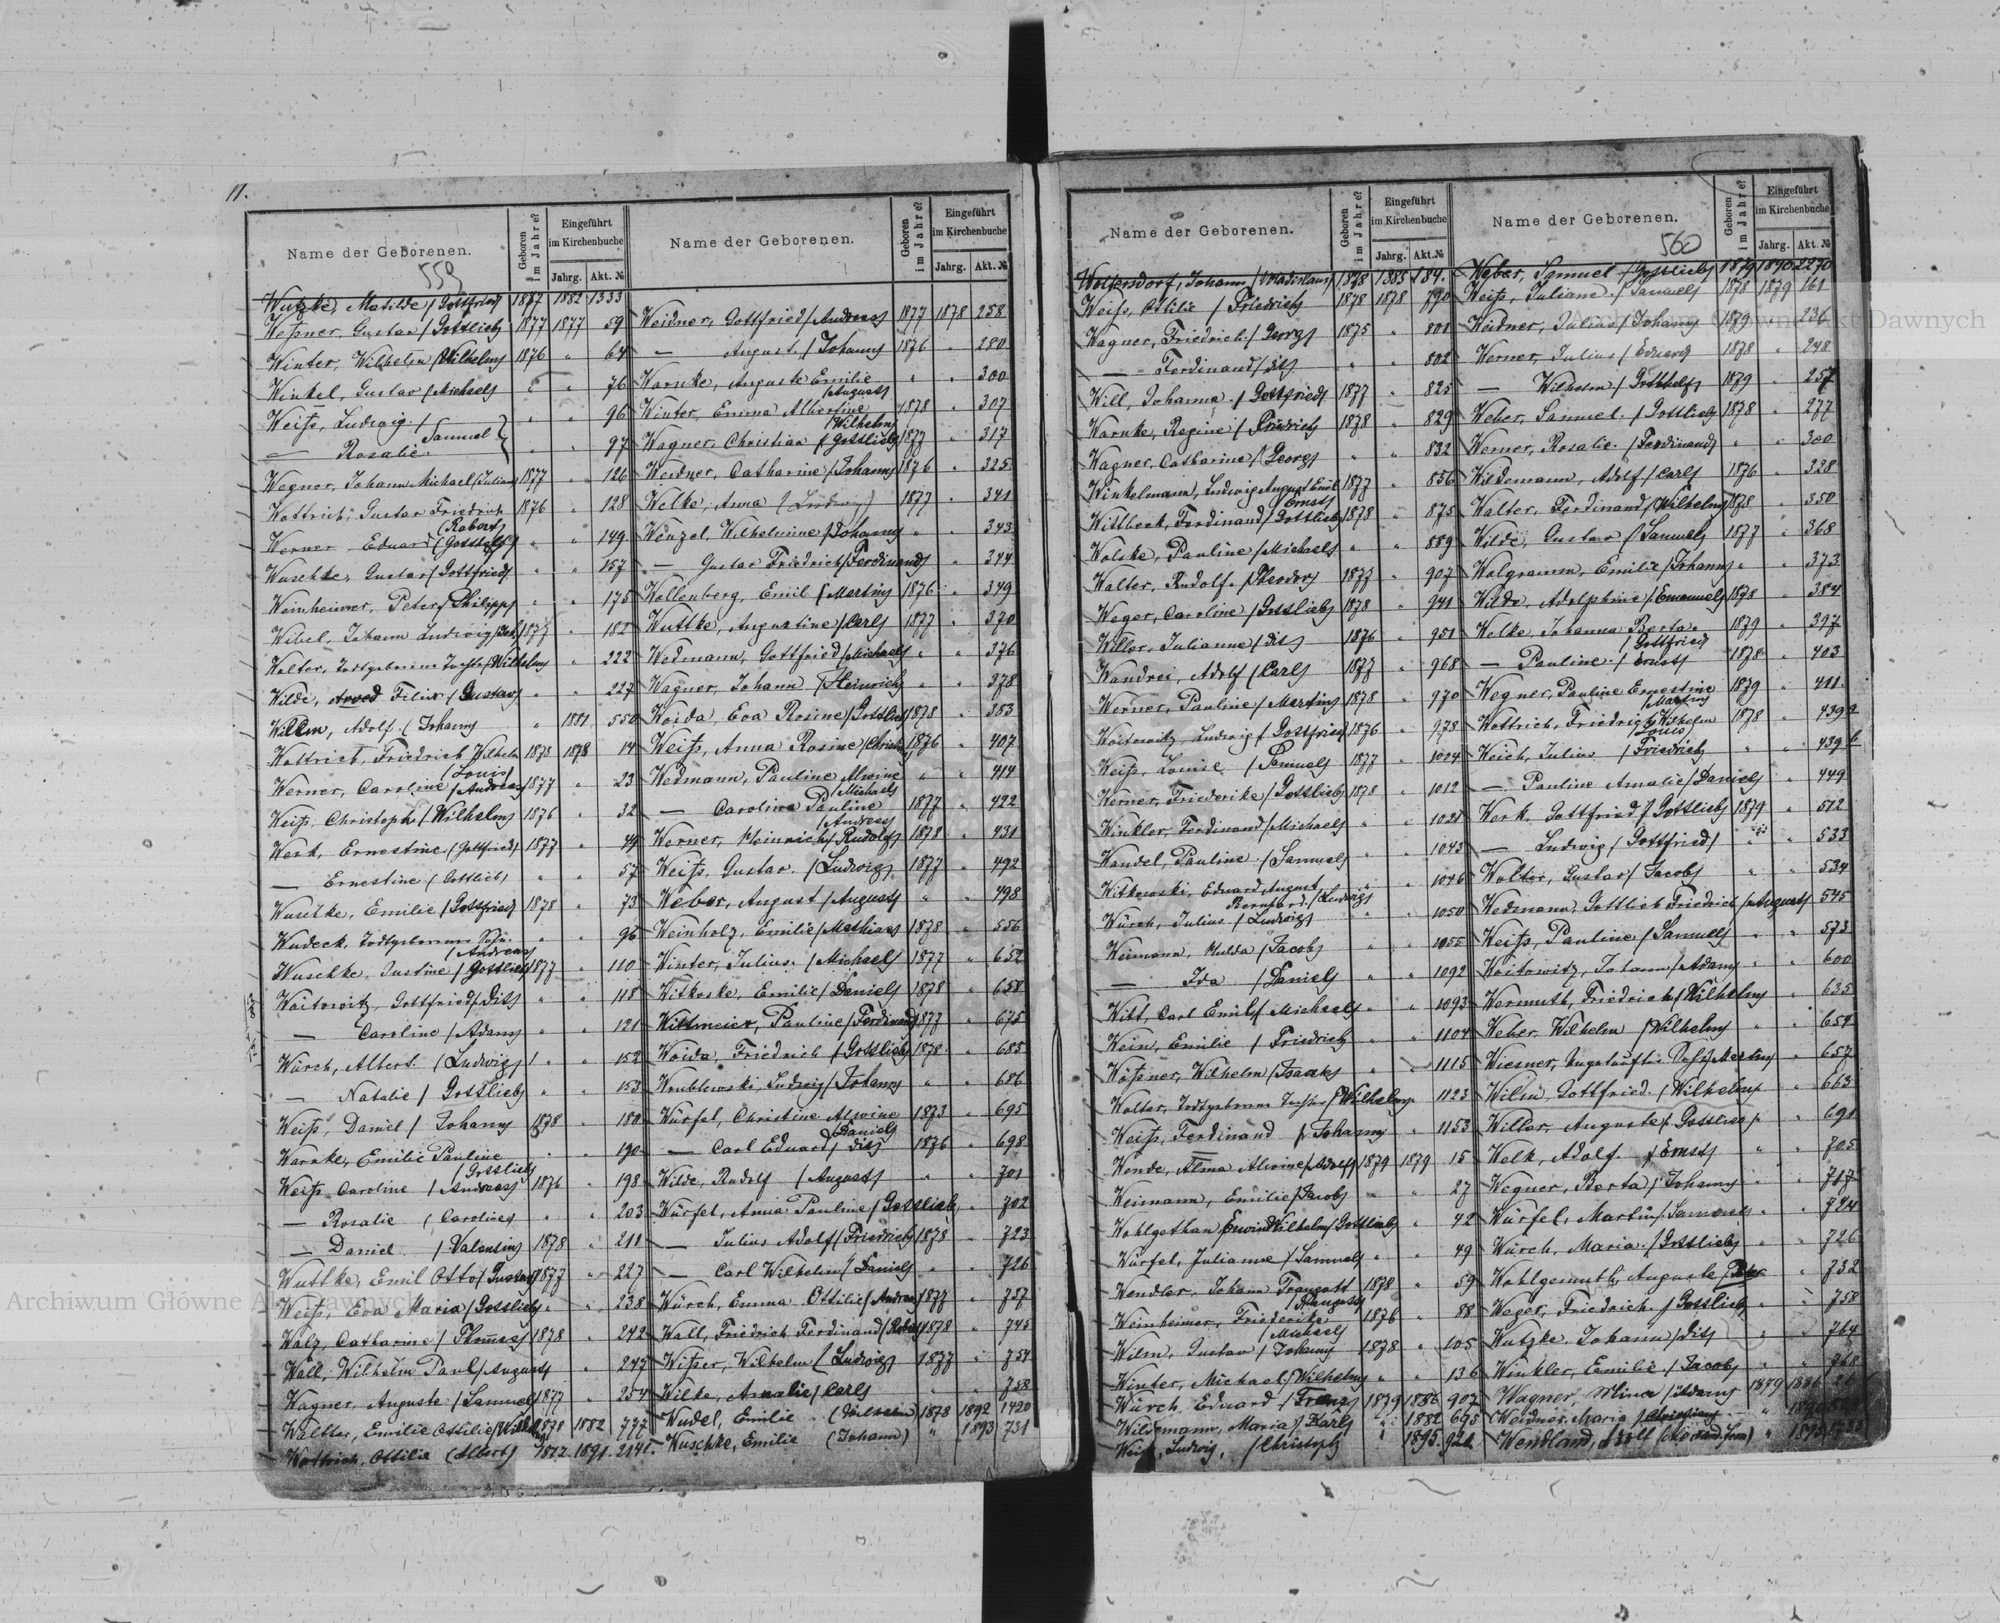 11.
Name der Geborenen.
559
Geboren im Jahre?
Eingeführt im Kirchenbuche
Jahrg. Akt. №
Wutzke, Matilde / Gottfried 1877 1882 1333
Weßner, Gustav / Gottlieb 1877 1877 59
Winter, Wilhelm / Wilhelm 1876 " 64
Winkel, Gustav / Michaels " " 76
Weiß, Ludwig / Samuel " " 96
— Rosalie. " " 97
Wegner, Johann Michael / Julian 1877 " 126
Wottrich, Gustav Friedrich (Robert) 1876 " 128
Werner Eduard (Gottholf) " " 149
Wuschke, Gustav / Gottfried " " 157
Weinheimer, Peter / Philipp " " 175
Wibel, Johann Ludwig 1877 " 182
Wolter, Todtgeborene Tochter / Wilhelm " 222
Wilde, Arved Felix / Gustav " " 227
Willm, Adolf / Johann " 1881 550
Wottrich, Friedrich Wilhelm (Louis) 1878 1878 14
Werner, Caroline / Andreas 1877 " 23
Weiß, Christoph / Wilhelm 1876 " 32
Werk, Ernestine (Gottfried) 1877 " 49
— Ernestine (Gottlieb) " " 57
Wuschke, Emilie / Gottfried 1878 " 73
Wudeck, Todtgeborener Sohn / Andreas " " 96
Wuschke, Justine / Gottlieb 1877 " 110
Woitowitz, Gottfried / Dito " " 118
— Caroline / Adam " " 121
Würch, Albert / Ludwig " " 152
— Natalie / Gottlieb " " 153
Weiß, Daniel / Johann 1878 " 180
Warnke, Emilie Pauline / Gottlieb " " 190
Weiß Caroline / Andreas 1876 " 198
— Rosalie (Caroline) " " 203
— Daniel / Valentin 1878 " 211
Wuttke, Emil Otto / Gustav 1877 " 227
Weiß, Eva Maria / Gottlieb " " 238
Walz, Catharine / Thomas 1878 " 242
Wall, Wilhelm Paul / August " 247
Wagner, Auguste / Samuel 1877 " 254
Walter, Emilie Ottilie 1878 1882 777
Wottrich, Ottilie (Albert) 1877 1891 2141
Name der Geborenen.
Geboren im Jahre?
Eingeführt im Kirchenbuche
Jahrg. Akt. №
Weidner, Gottfried / Andreas 1877 1878 258
— August / Johann 1876 " 280
Warnke, Auguste Emilie / August " " 300
Winter, Emma Albertine / Wilhelm 1878 " 307
Wagner, Christian / Gottlieb 1877 " 317
Weidner, Catharine / Johann 1876 " 325
Welke, Anna (Ludwig) 1877 " 341
Wenzel, Wilhelmine / Johann " " 343
— Gustav Friedrich / Ferdinand " 344
Wallenberg, Emil / Martin 1876 " 349
Wuttke, Augustine / Carl 1877 " 370
Wedmann, Gottfried / Michael " " 376
Wagner, Johann / Heinrich " " 378
Woida, Eva Rosine / Gottlieb 1878 " 383
Weiß, Anna Rosine 1876 " 407
Wedmann, Pauline Alwine / Michael " " 414
— Caroline Pauline / Andreas 1877 " 422
Werner, Heinrich / Rudolf 1878 " 431
Weiß, Gustav / Ludwig 1877 " 492
Weber, August / August " " 498
Weinholz, Emilie / Mathias 1878 " 556
Winter, Julius / Michael 1877 " 652
Witkoske, Emilie / Daniel 1878 " 658
Wittmeier, Pauline / Ferdinand 1877 " 675
Woida, Friedrich / Gottlieb 1878 " 685
Wrublewski Ludwig / Johann " " 686
Würfel, Christine Alwine / Daniel 1873 " 695
— Carl Eduard / Dito 1876 " 698
Wilde, Rudolf / August " " 701
Würfel, Anna Pauline / Gottlieb " 702
— Julius Adolf / Friedrich 1878 " 723
— Carl Wilhelm / Daniel " " 726
Würch, Emma Ottilie / Andreas 1877 " 737
Wall, Friedrich Ferdinand / Robert 1878 " 745
Wißer, Wilhelm / Ludwig 1877 " 754
Wilke, Amalie / Carl " " 758
Wudel, Emilie (Wilhelm) 1878 1892 1420
Wuschke, Emilie (Johann) " 1893 731
Name der Geborenen.
Geboren im Jahre?
Eingeführt im Kirchenbuche
Jahrg. Akt. №
Woltersdorf, Johann / Wladislaus 1878 1885 184.
Weiß, Ottilie / Friedrich 1878 1878 790
Wagner, Friedrich / Georg 1875 " 801
— Ferdinand / Dito " " 802
Will, Johanna / Gottfried 1877 " 825
Warnke, Regine / Friedrich 1878 " 829
Wagner, Catharine / Georg " " 832
Winkelmann, Ludwig August Emil / Ernst 1877 " 856
Wittbeck, Ferdinand / Gottlieb 1878 " 875
Wolske, Pauline / Michael " " 889
Walter, Rudolf / Theodor 1877 " 907
Weger, Caroline / Gottlieb 1878 " 941
Willer, Julianne / Dito 1876 " 951
Wandrei, Adolf / Carl 1877 " 968
Werner, Pauline / Martin 1878 " 970
Woitowitz, Ludwig / Gottfried 1876 " 978
Weiß, Louise / Samuel 1877 " 1004
Werner, Friederike / Gottlieb 1878 " 1012
Winkler, Ferdinand / Michael " " 1021
Wandel, Pauline / Samuel " " 1043
Witkowski, Eduard August Bernhard / Ludwig " " 1046
Würch, Julius / Ludwig " 1050
Weimann, Hulda / Jacob " " 1055
— Ida / Daniel " " 1092
Witt, Carl Emil / Michael " " 1093
Wein, Emilie / Friedrich " " 1104
Wößner, Wilhelm / Isaak " " 1115
Wolter, Todtgeborene Tochter / Wilhelm " 1123
Weiß, Ferdinand / Johann " 1153
Wende, Alma Alwine / Adolf 1879 1879 15
Weimann, Emilie / Jacob " " 27
Wohlgethan Erwin Wilhelm / Gottlieb " 42
Würfel, Julianne / Samuel " " 49
Wendler, Johann Traugott / Traugott 1878 " 59
Weinheimer, Friederike / Michael 1876 " 88
Wilm, Gustav / Johann 1878 " 105
Winter, Michael / Wilhelm " " 136
Würch, Eduard / Franz 1879 1886 907
Wildemann, Maria / Karl " 1882 695
Weiß, Ludwig, / Christoph 1895
Name der Geborenen.
560
Geboren im Jahre?
Eingeführt im Kirchenbuche
Jahrg. Akt. №
Weber, Samuel / Gottlieb 1879 1890 2270
Weiß, Juliane / Samuel 1878 1879 161
Weidner, Julius / Johann 1879 " 236
Werner, Julius / Eduard 1878 " 248
— Wilhelm / Gotthelf 1879 " 257
Weber, Samuel / Gottlieb 1878 " 277
Werner, Rosalie / Ferdinand " " 300
Wildemann, Adolf / Carl 1876 " 328
Walter, Ferdinand / Wilhelm 1878 " 350
Wilde, Gustav / Samuel 1877 " 368
Walgramm, Emilie / Johann " " 373
Wilde, Adolphine / Emanuel 1878 " 384
Welke, Johanna Berta / Gottfried 1879 " 397
— Pauline / Ernst 1878 " 403
Wegner, Pauline Ernestine / Martin 1879 " 411
Wottrich, Friedrich Wilhelm (Louis) 1878 " 439 a
Weich, Julius / Friedrich " " 439 b
— Pauline Amalie / Daniel " 449
Werk, Gottfried / Gottlieb 1879 " 512
— Ludwig / Gottfried " " 533
Wolter, Gustav / Jacob " " 534
Wedmann, Gottlieb Friedrich / August 545
Weiß, Pauline / Samuel " " 573
Woitowitz, Johann / Adam " " 600
Wermuth, Friedrich / Wilhelm " 635
Weber, Wilhelm / Wilhelm " " 654
Wiesner, Ungetaufter Sohn / Martin " 657
Wilm, Gottfried / Wilhelm " 663
Willer, Auguste / Gottlieb " " 691
Welk, Adolf / Ernst " " 705
Wegner, Berta / Johann " " 717
Würfel, Martin / Samuel " " 724
Würch, Maria / Gottlieb " " 726
Wohlgemuth, Auguste / Peter " 732
Weger, Friedrich / Gottlieb " " 758
Wutzke, Johann / Dito " " 764
Winkler, Emilie / Jacob " " 768
Wagner, Mina / Adam 1879 1886
Weidner, Maria / Christian "
Wendland, Adolf "
Archiwum Główne Akt Dawnych
Archiwum Główne Akt Dawnych